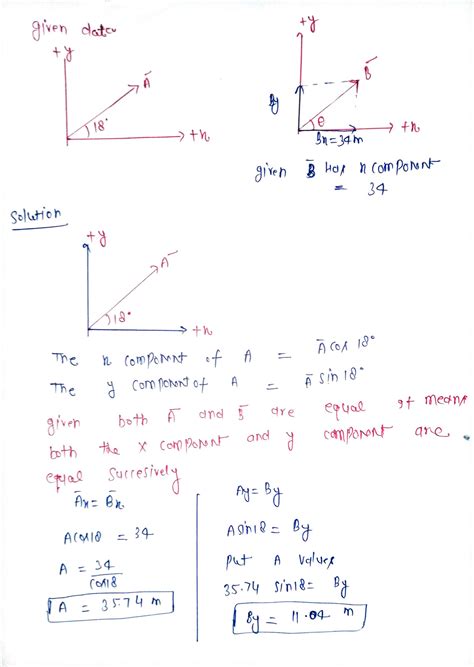 given data
+y
Ā
18°
+x
+y
B̄
By
θ
+x
Bx = 34 m
given B̄ Has x component
= 34
Solution
+y
Ā
18°
+x
The x component of A = Ā cos 18°
The y component of A = Ā sin 18°
given both Ā and B̄ are equal It means
both the x component and y component are
equal Succesively
Āx = B̄x
A cos18 = 34
A = 34/cos18
A = 35.74 m
Ay = By
A sin18 = By
Put A values
35.74 sin18 = By
By = 11.04 m